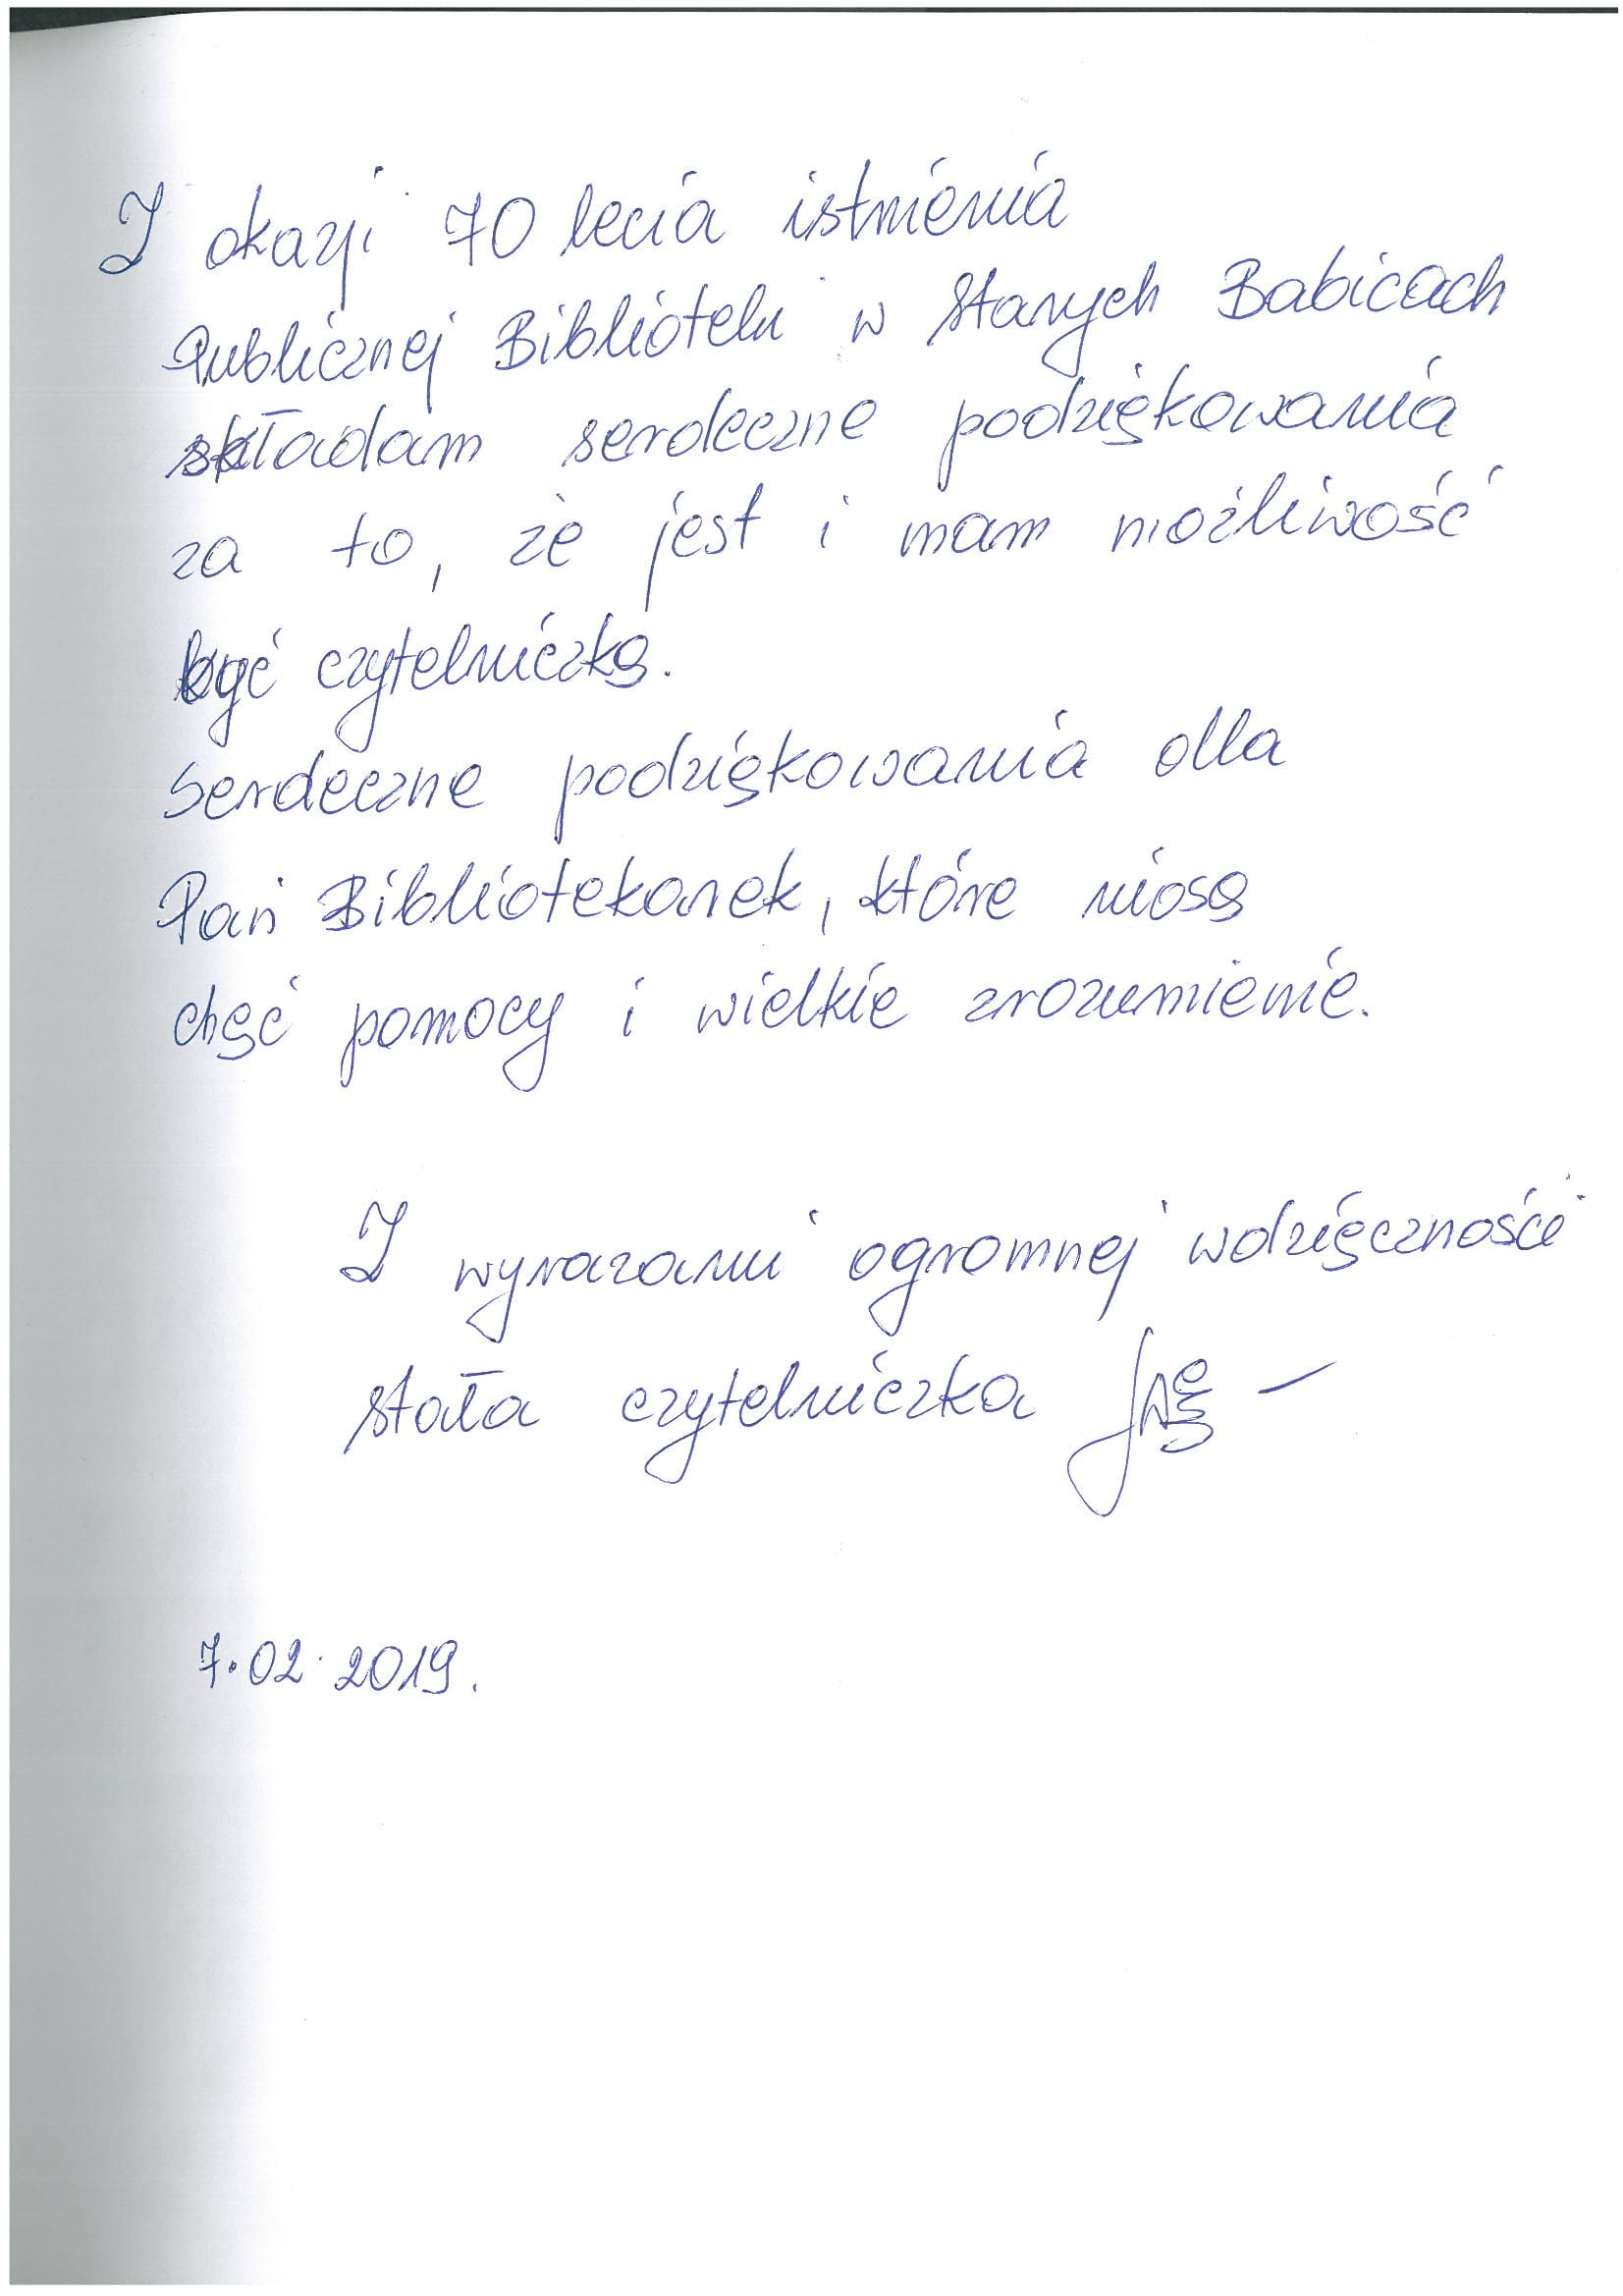 Z okazji 70 lecia istnienia
Publicznej Biblioteki w Starych Babicach
składam serdeczne podziękowania
za to, że jest i mam możliwość
być czytelniczką.
Serdeczne podziękowania dla
Pań Bibliotekarek, które niosą
chęć pomocy i wielkie zrozumienie.
Z wyrazami ogromnej wdzięczności
stała czytelniczka
7.02.2019.